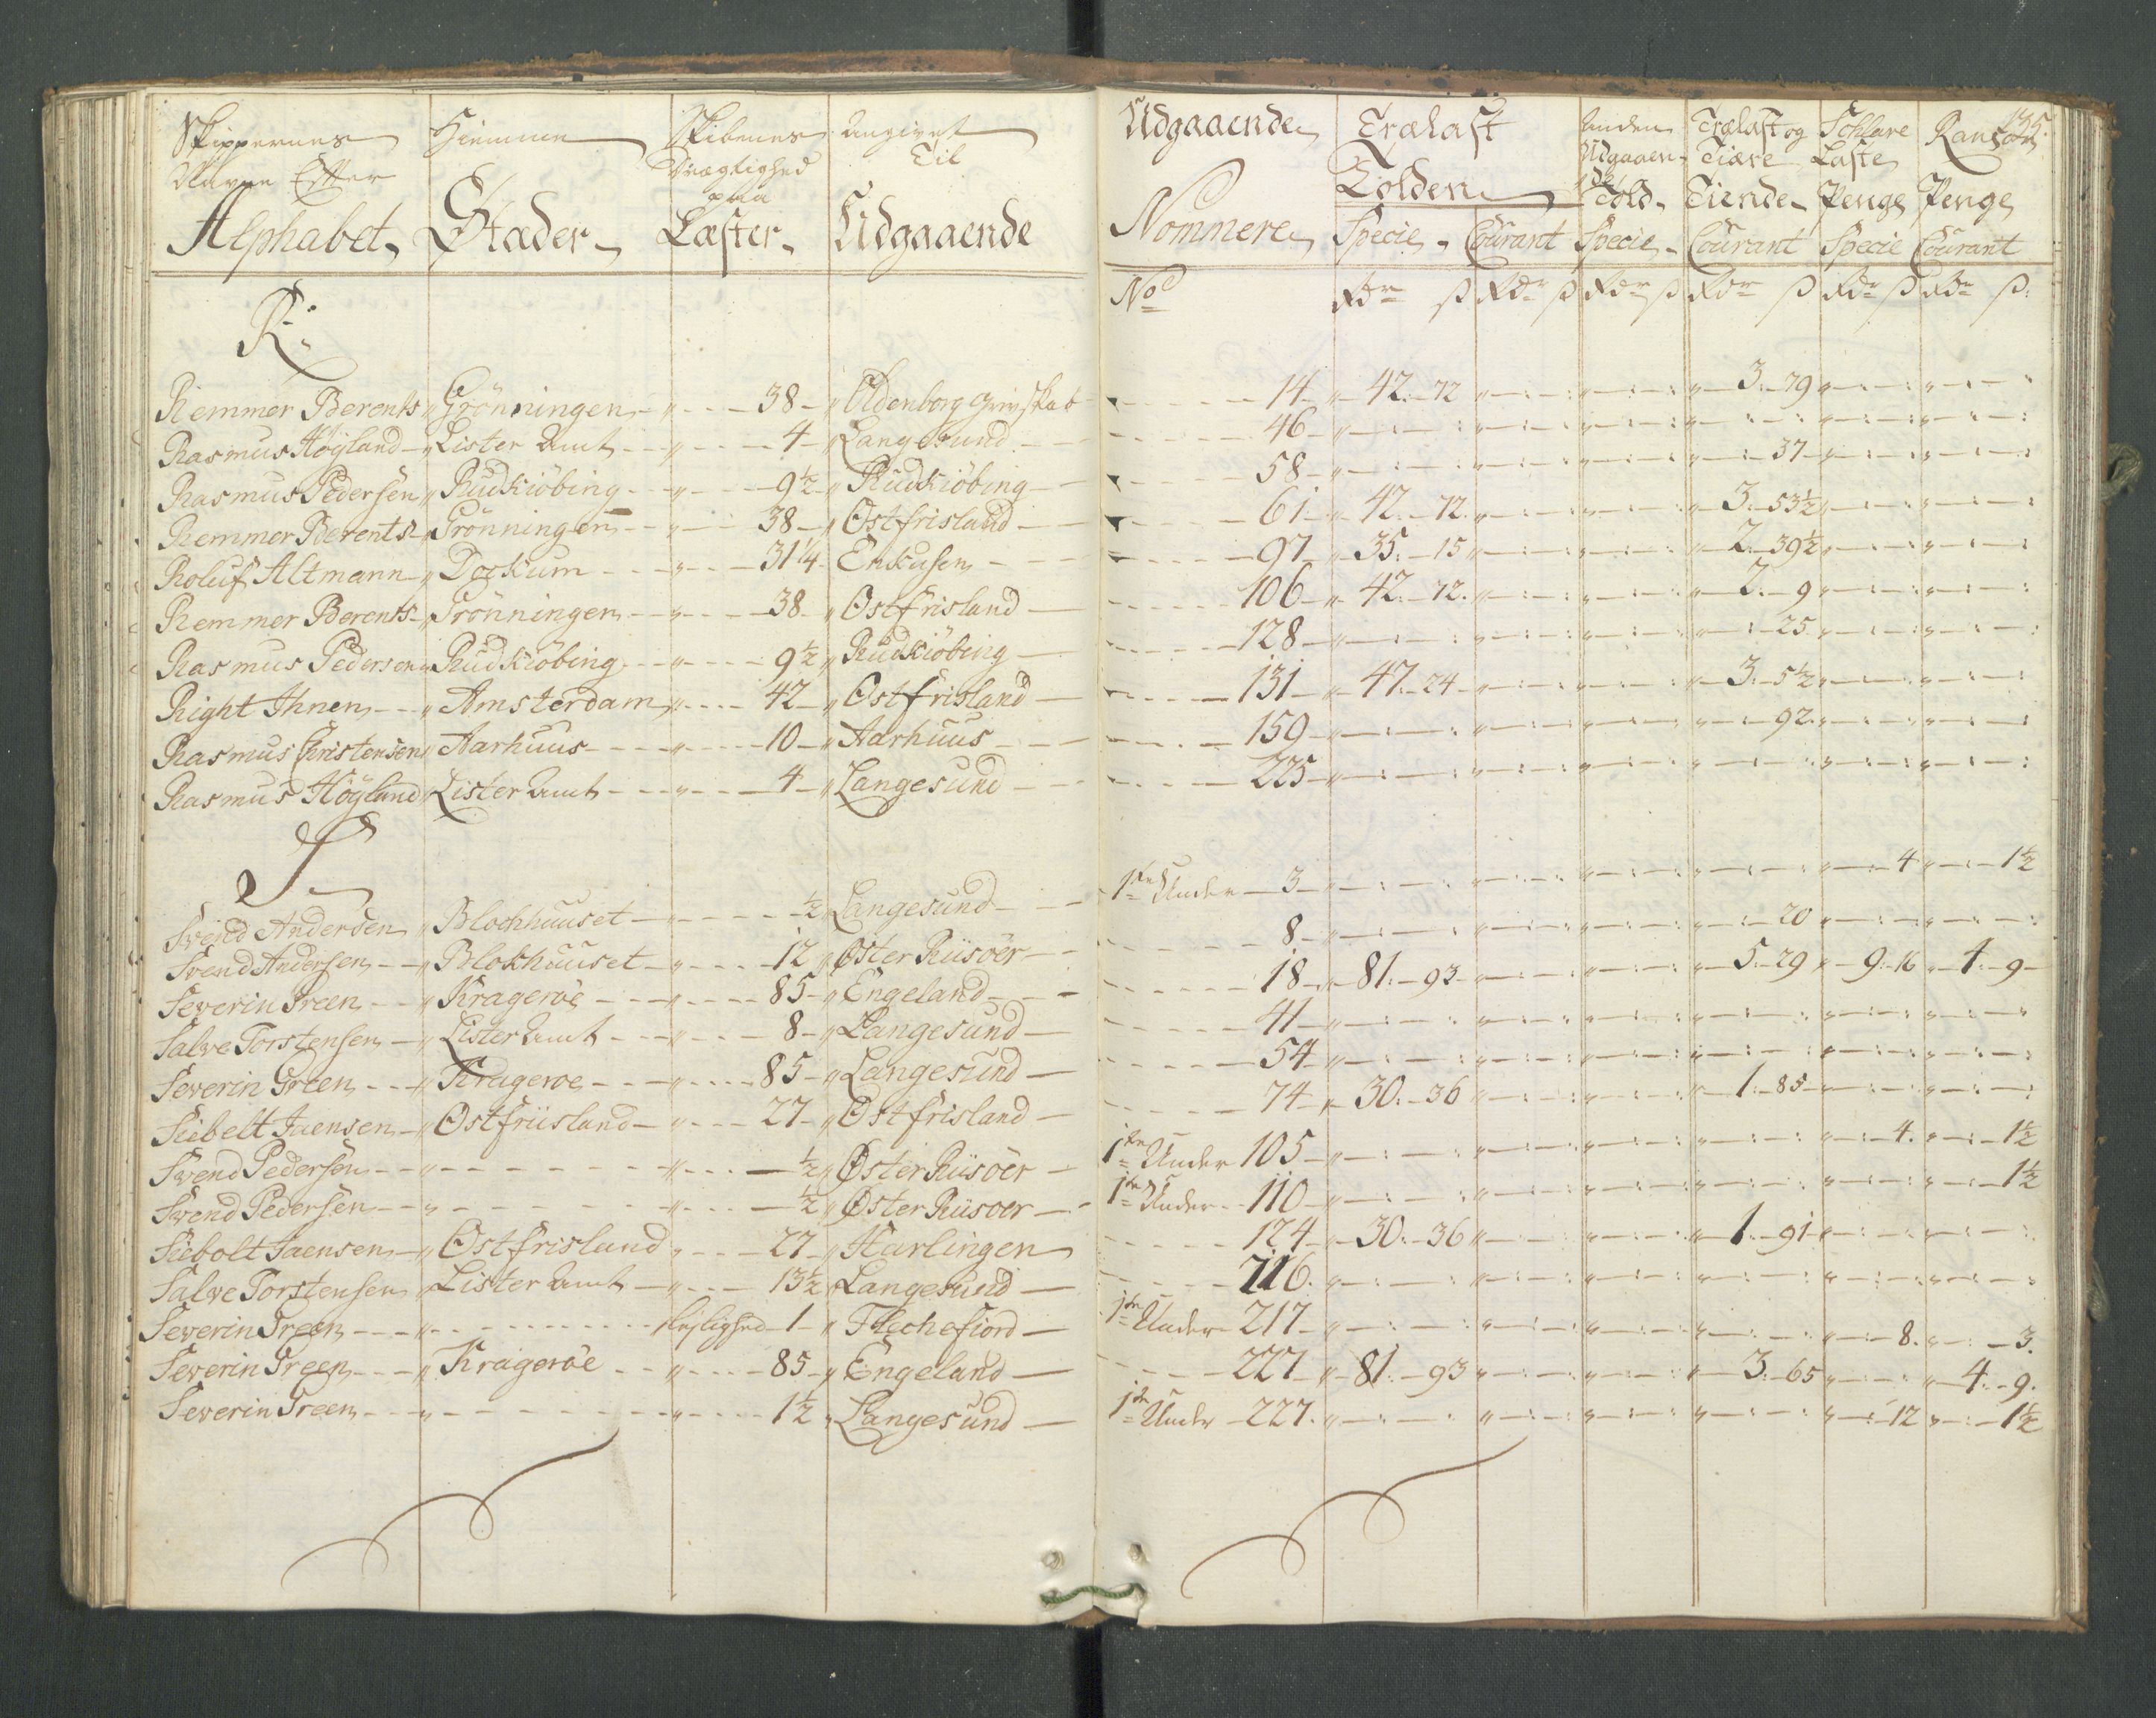 Skippernes Hiemme Skibenes Angivet
Navne Efter Drægtighed Til
paa
Alphabet Stæder Læster Udgaaende
R:
Remmer Berents Grönningen 38 Oldenborg
Rasmus Höyland Lister Amt 4 Langesund
Rasmus Pedersen Rudkiöbing 9½ Rudkiöbing
Remmer Berents Grönningen 38 Ostfrisland
Roluf Altmann Dockum 31¼ Enkusen
Remmer Berents Grönningen 38 Ostfrisland
Rasmus Pedersen Rudkiöbing 9½ Rudkiöbing
Right Ihnen Amsterdam 42 Ostfrisland
Rasmus Christensen Aarhuus 10 Aarhuus
Rasmus Höyland Lister Amt 4 Langesund
S
Svend Andersen Blochhuuset ½ Langesund
Svend Andersen Blokhuuset 12 Øster Riisöer
Severin Green Krageröe 85 Engeland
Salve Torstensen Lister Amt 8 Langesund
Severin Green Krageroe 85 Langesund
Siebelt Jaensen Ostfriisland 27 Ostfrisland
Svend Pedersen ½ Øster Riisöer
Svend Pedersen ½ Øster Riisoer
Siebolt Jaensen Ostfrisland 27 Harlingen
Salve Torstensen Lister Amt 13½ Langesund
Severin Green 1 Flechefiord
Severin Green Krageröe 85 Engeland
Severin Green 1½ Langesund
135.
Udgaaende Trælast Anden Trælast og Ranson
Udgaaen- Tiære Laste
Tolden de
Nommere Told Tiende Penge Penge
Specie Courant Specie Courant Specie Courant
No Rdr ß Rdr ß Rdr ß Rdr ß Rdr ß Rdr ß
14 42. 72 3. 79
46
58 37
61 42. 72 3. 53½
97 35. 15 2. 39½
106 42. 72 2. 9
128 25
131 47. 24 3. 5½
159 92
225
1ste Under 3 4 1½
8 20
18 81. 93 5. 29 9. 16 4. 9
41
54
74 30. 36 1. 85
1ste Under 105 4. 1½
1ste Under 110 1½
124 30. 36 1. 91
216
1ste Under 217 8. 3.
227 81. 93 3. 65 4. 9.
1ste Under 227. 12 1½